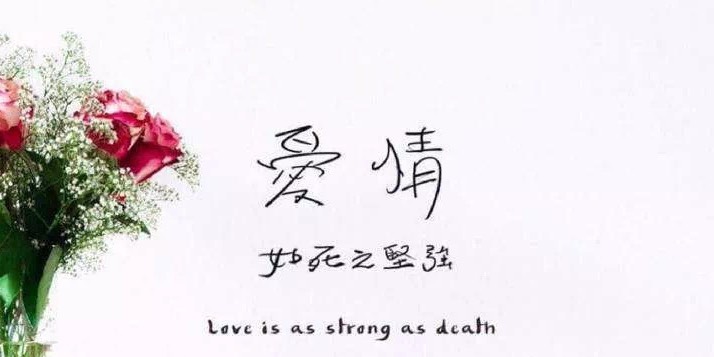 愛情
如死之堅強
Love is as strong as death